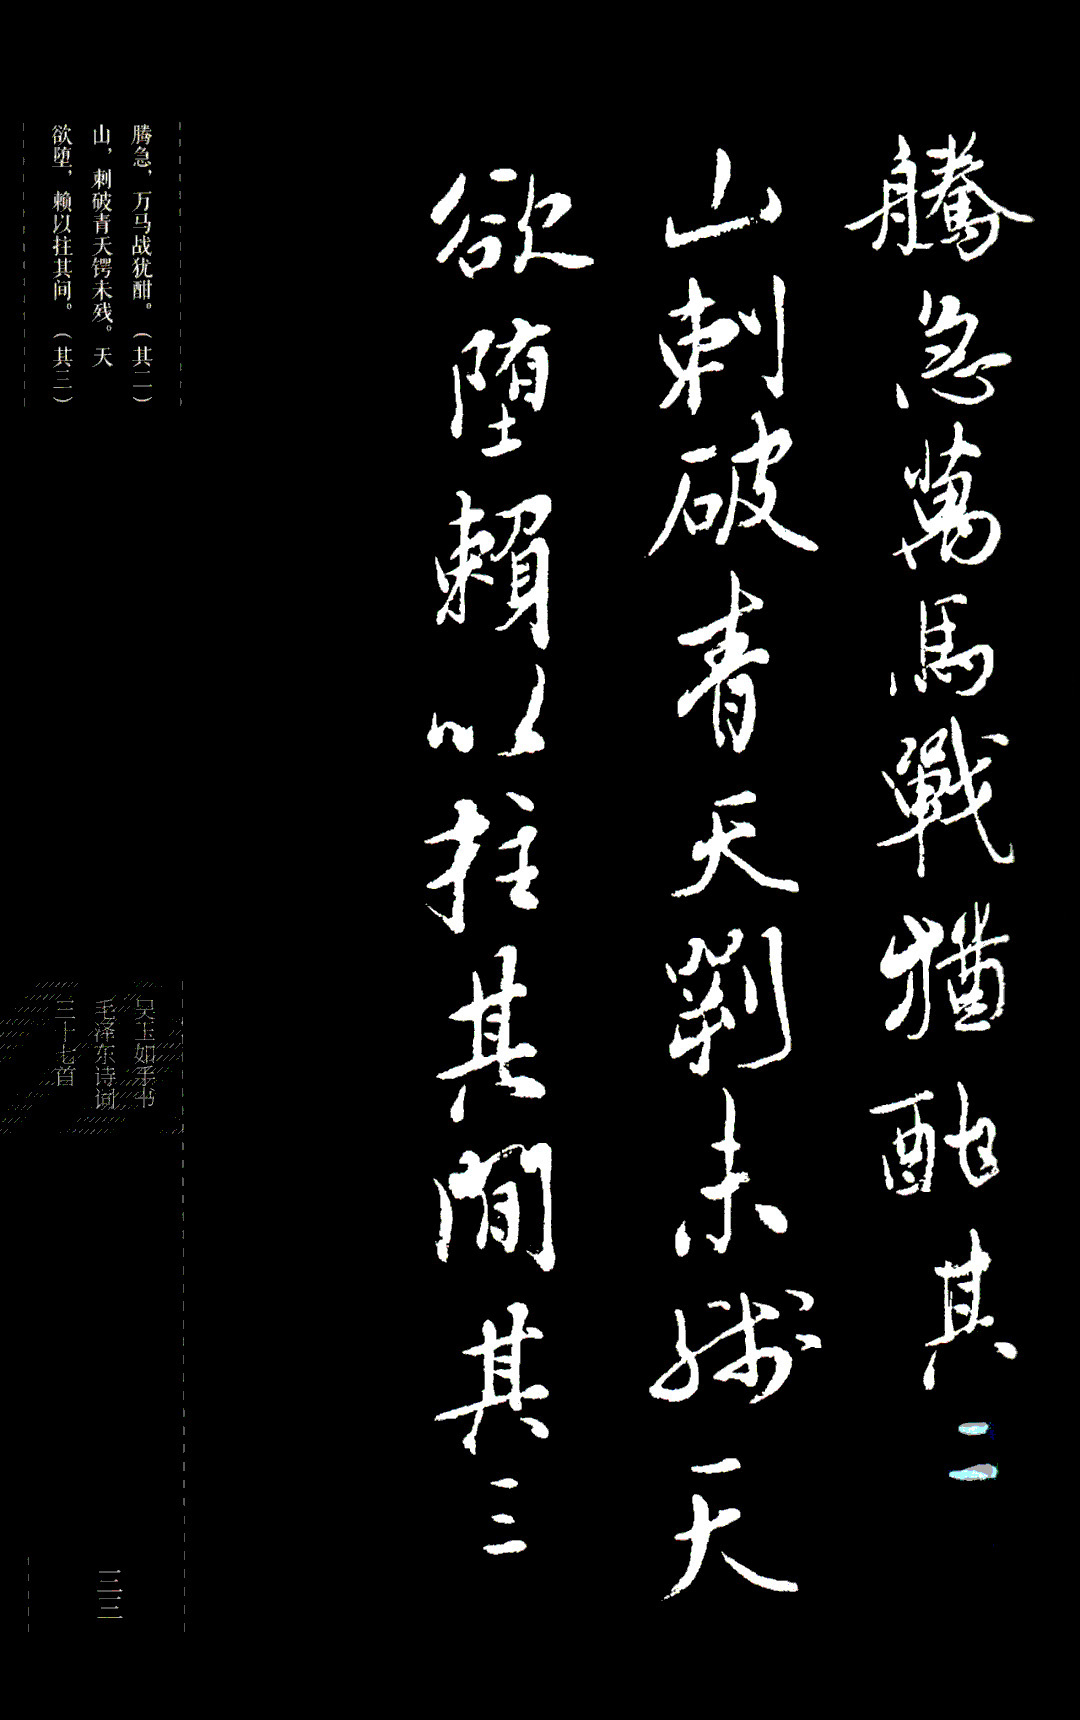 騰急萬馬戰猶酣其二
山刺破青天剃未殘天
欲堕賴以拄其間其三
腾急，万马战犹酣。（其二）
山，刺破青天锷未残。天
欲堕，赖以拄其间。（其三）
吴玉如手书
毛泽东诗词
三十七首
三三